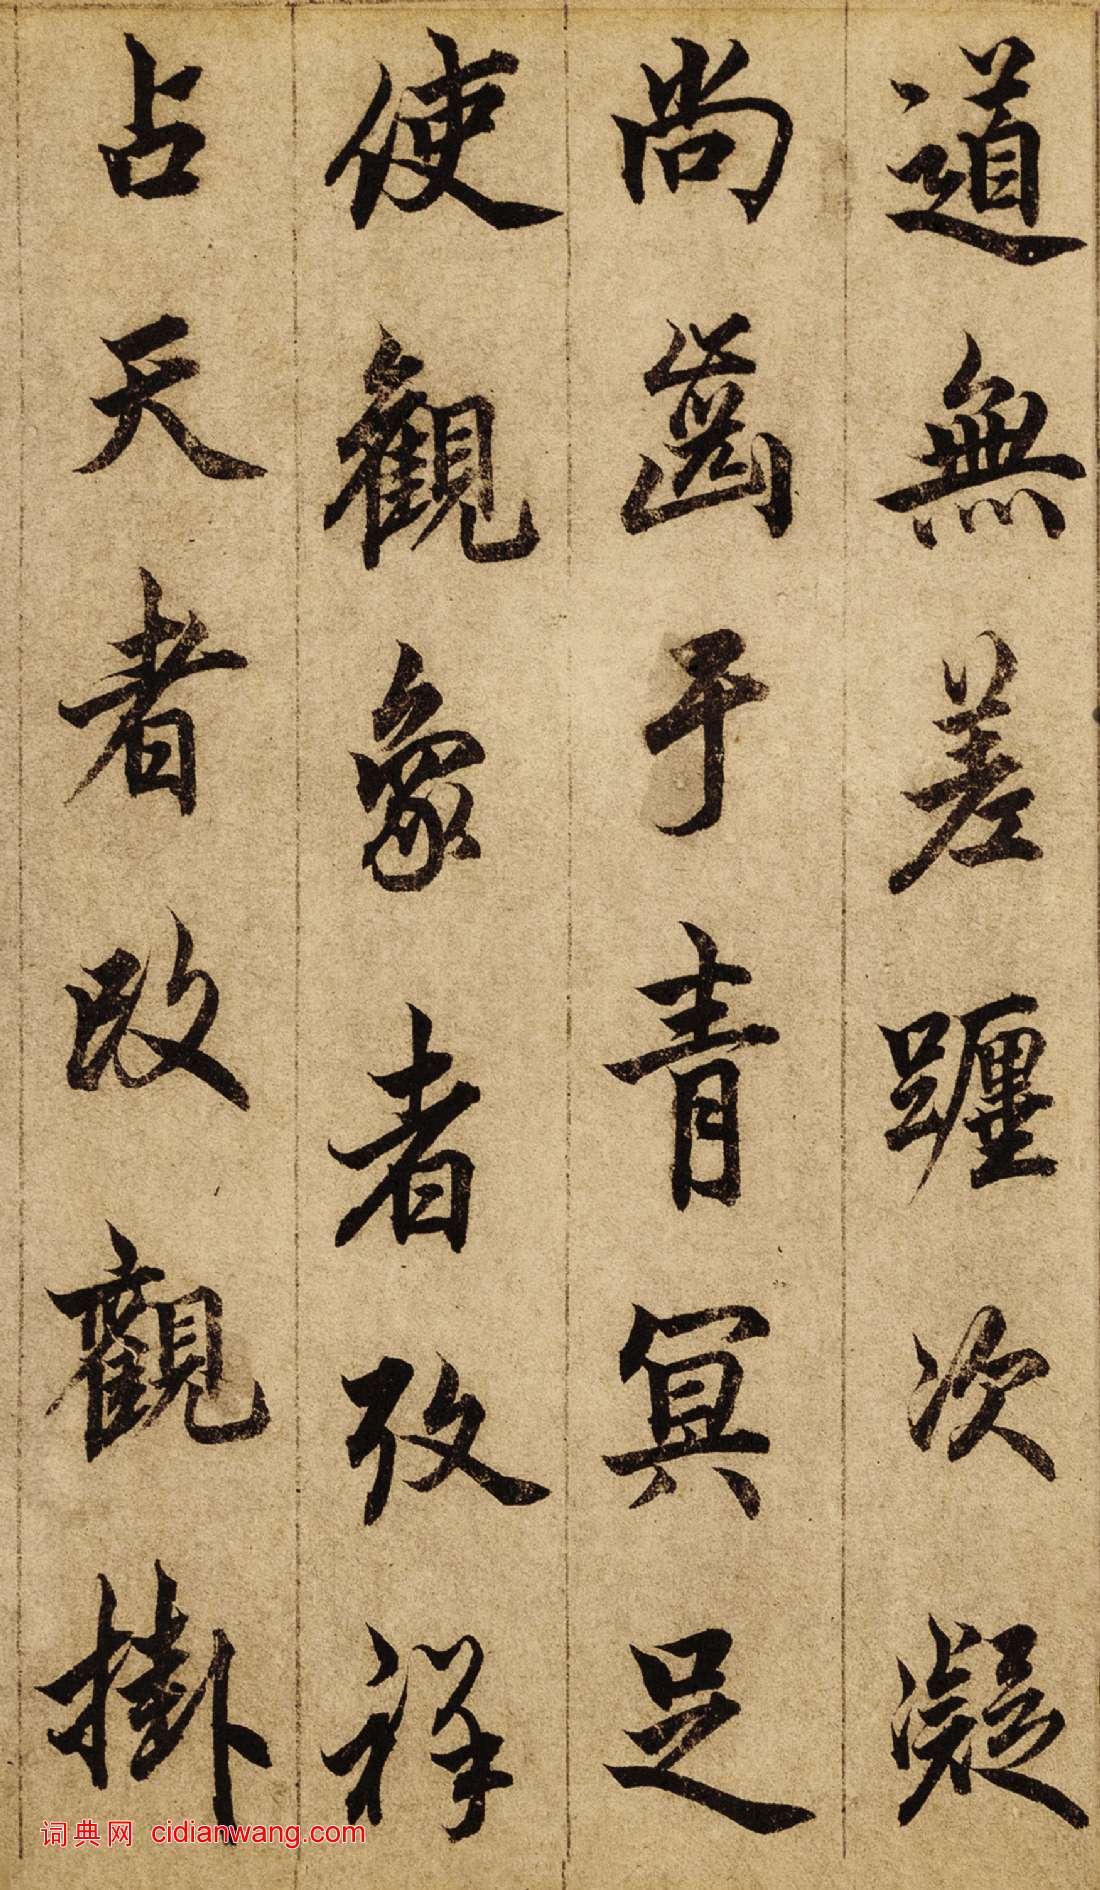 道無差躔次凝
尚齒于青冥足
使觀象者攷祥
占天者改觀掛
词典网 cidianwang.com